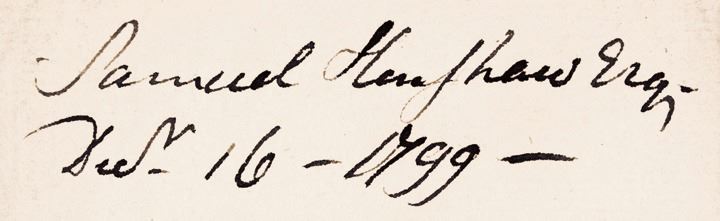 Samuel Henshaw Esq,
Decr. 16 - 1799 -